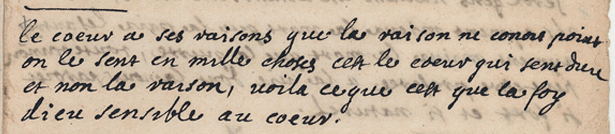 le coeur a ses raisons que la raison ne connoit point
on le sent en mille choses cest le coeur qui sent dieu
et non la raison, voila ce que cest que la foy
dieu sensible au coeur.